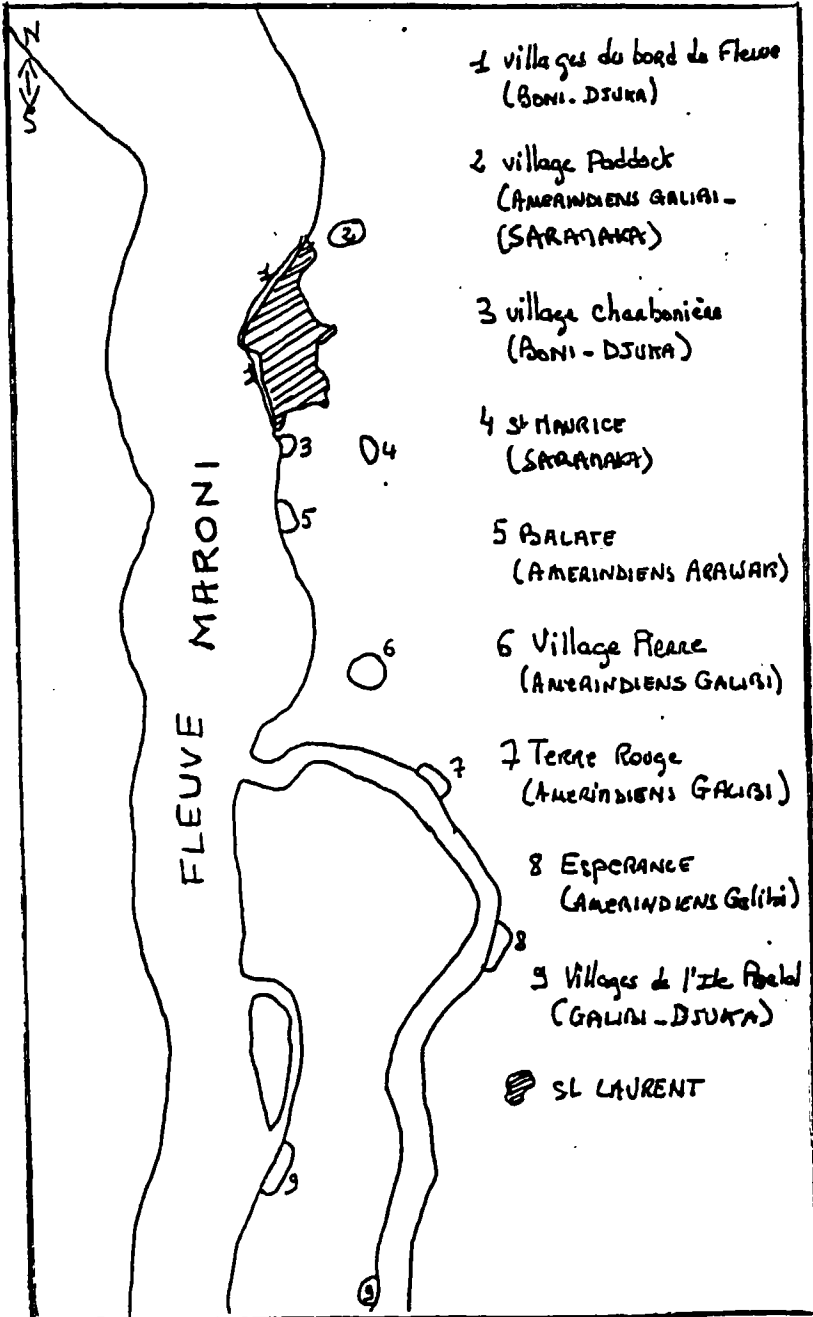 N
S
1 villages du bord du Fleuve
(BONI-DJUKA)
2 village Paddock
(AMERINDIENS GALIBI-
(SARAMAKA)
3 village Charbonière
(BONI - DJUKA)
4 St MAURICE
(SARAMAKA)
5 BALATE
(AMERINDIENS ARAWAK)
6 Village Pierre
(AMERINDIENS GALIBI)
7 Terre Rouge
(AMERINDIENS GALIBI)
8 ESPERANCE
(AMERINDIENS Galibi)
9 Villages de l'Ile Portal
(GALIBI - DJUKA)
St LAURENT
FLEUVE MARONI
1
2
1
3
4
5
6
7
8
9
9